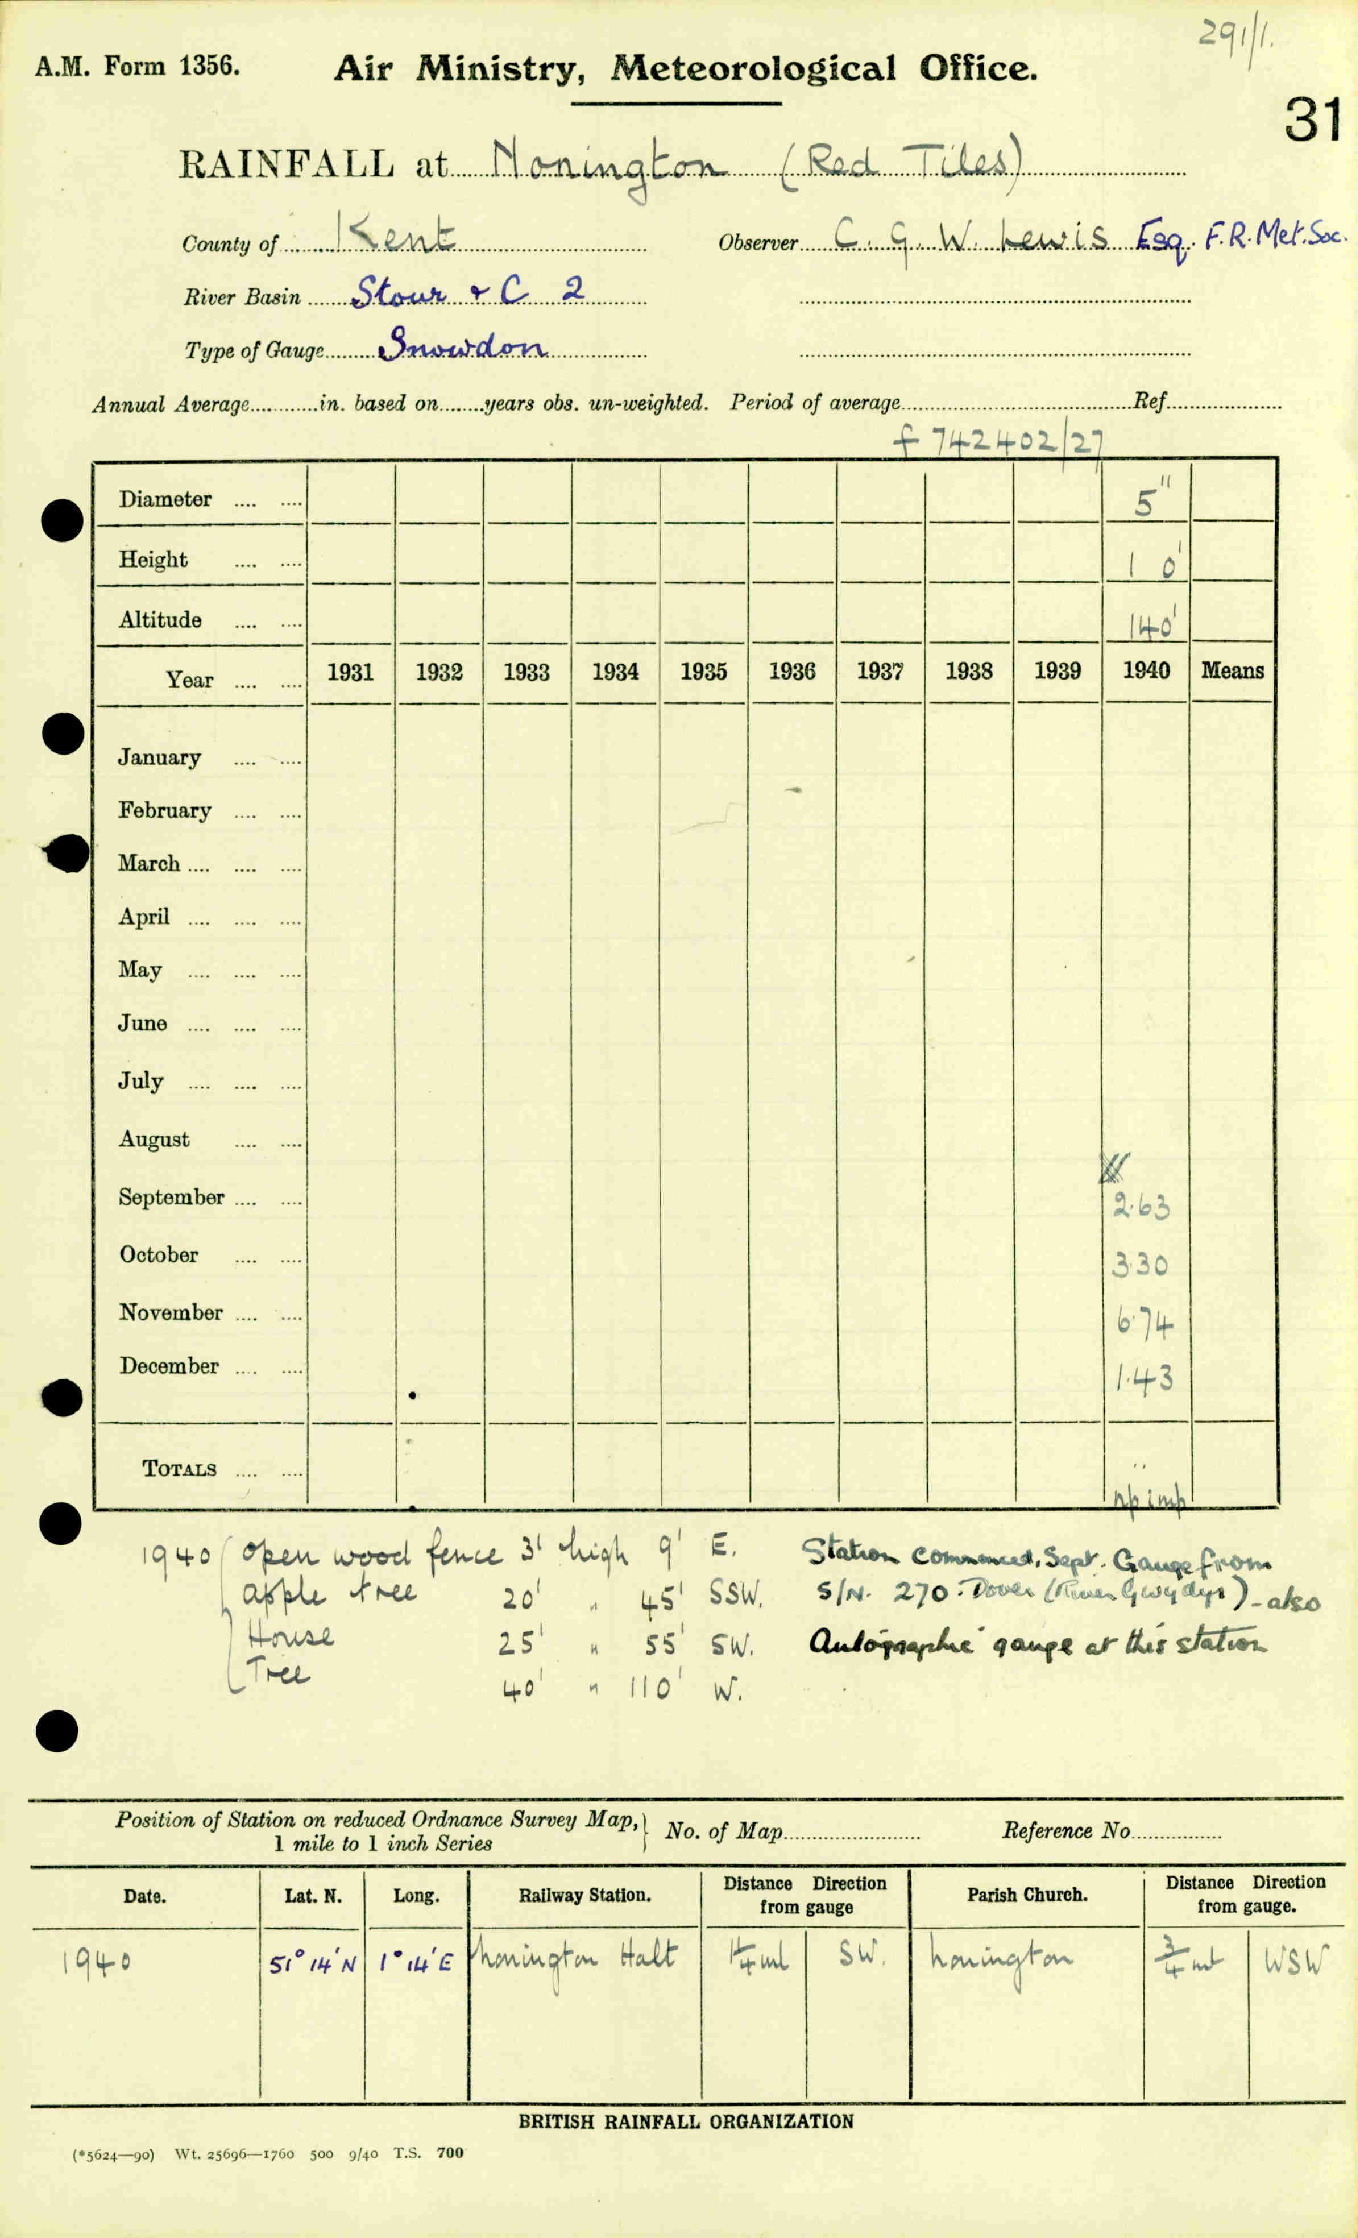 291/1.
A.M. Form 1356. Air Ministry, Meteorological Office.
31
RAINFALL at Nonington (Red Tiles)
County of Kent Observer C. G. W. Lewis Esq. F.R.Met.Soc.
River Basin Stour & C 2
Type of Gauge Snowdon
Annual Average............in. based on........years obs. un-weighted. Period of average............Ref............
f 742402/27
Diameter .... .... 5"
Height .... .... 1 0'
Altitude .... .... 140'
Year .... .... 1931 1932 1933 1934 1935 1936 1937 1938 1939 1940 Means
January .... ....
February .... ....
March .... .... ....
April .... .... ....
May .... .... ....
June .... .... ....
July .... .... ....
August .... ....
September .... .... 2.63
October .... .... 3.30
November .... .... 6.74
December .... .... 1.43
TOTALS .... ....
1940 open wood fence 3' high 9' E. Station commenced, Sept. Gauge from
apple tree 20' " 45' SSW. S/N. 270. Dover (River Gwydyr) - also
House 25' " 55' SW. Autographic gauge at this station
Tree 40' " 110' W.
Position of Station on reduced Ordnance Survey Map, No. of Map............ Reference No............
1 mile to 1 inch Series
Date. Lat. N. Long. Railway Station. Distance Direction from gauge Parish Church. Distance Direction from gauge.
1940 51° 14' N 1° 14' E Nonington Halt 1¼ ml SW. Nonington ¾ ml WSW
BRITISH RAINFALL ORGANIZATION
(*5624—90) Wt. 25696—1760 500 9/40 T.S. 700